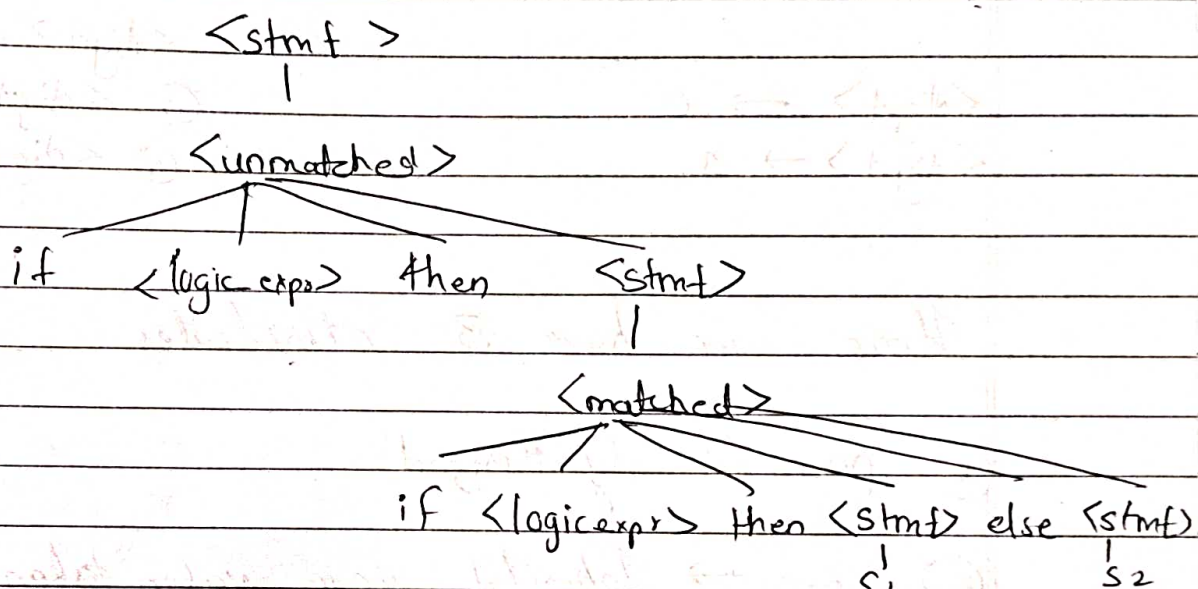 <stmt>
<unmatched>
if <logic_expr> then <stmt>
<matched>
if <logicexpr> then <stmt> else <stmt>
S1 S2